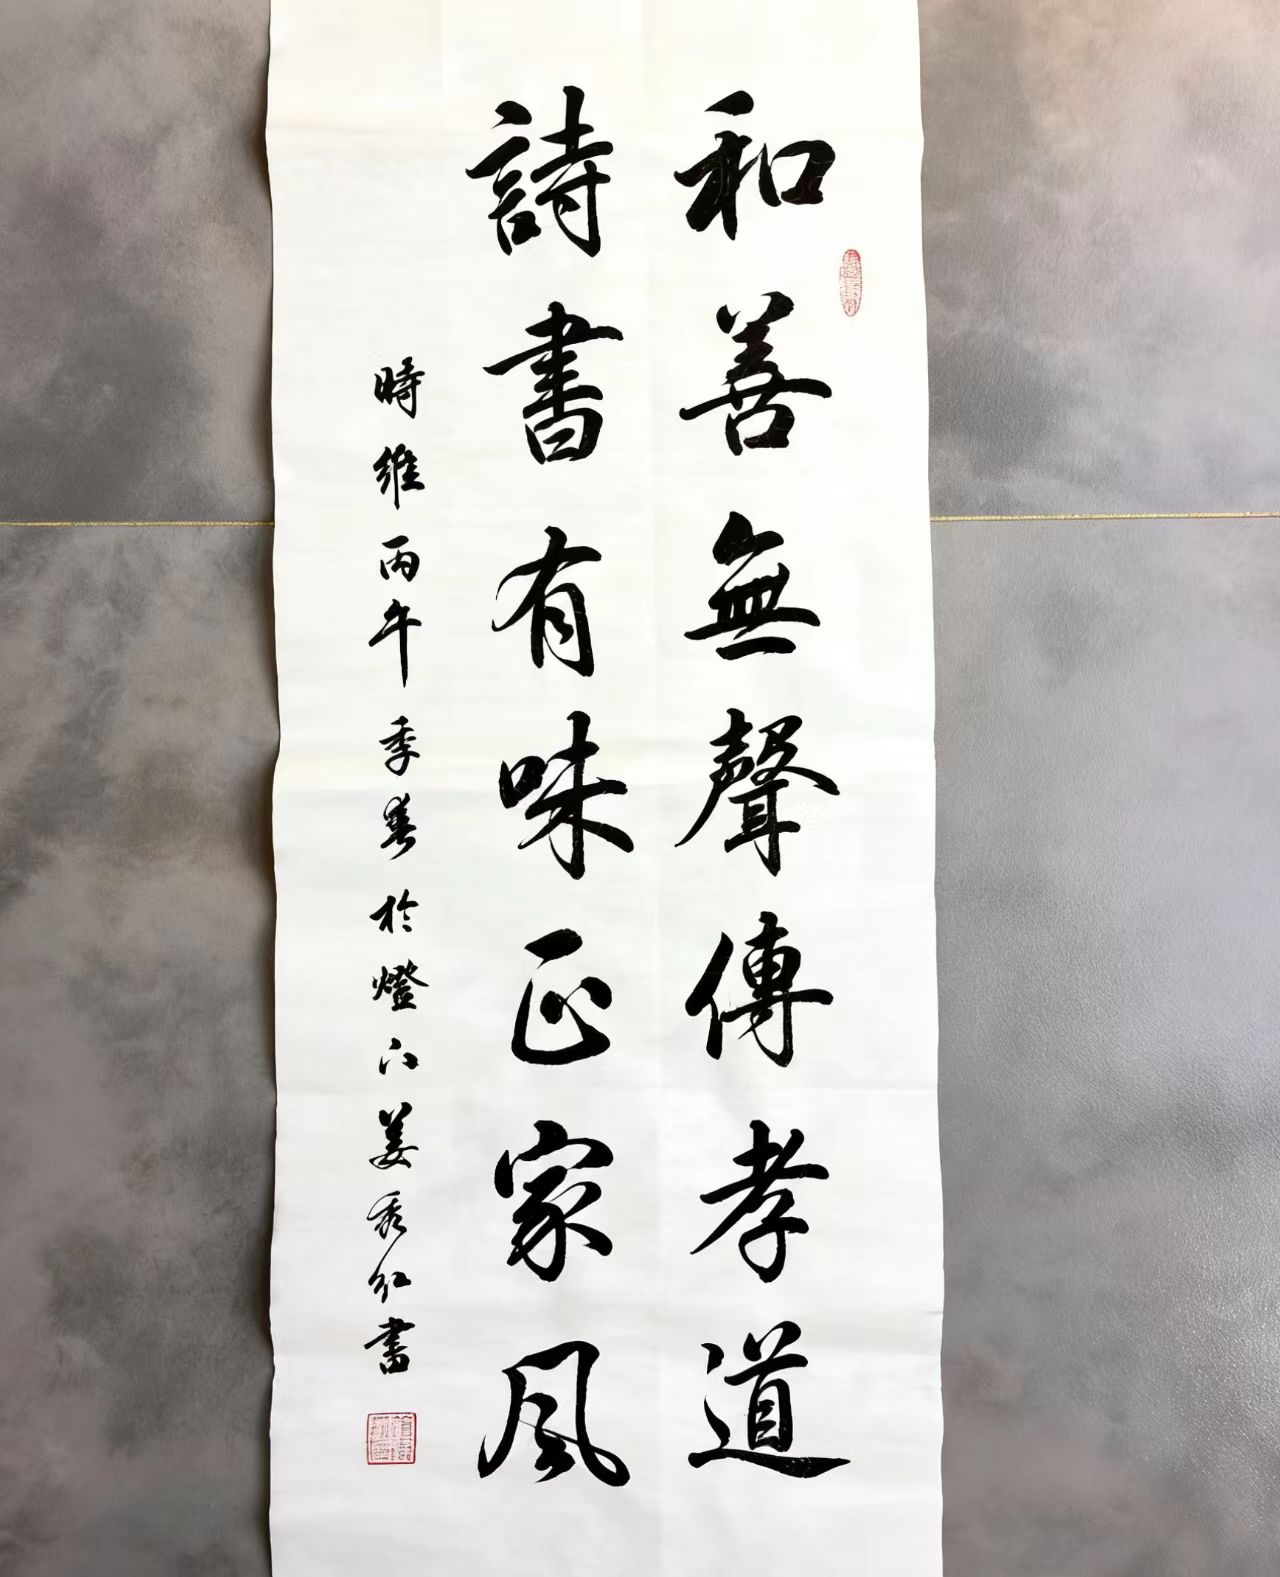 和善無聲傳孝道
詩書有味正家風
時維丙午季春於燈下姜秀紅書